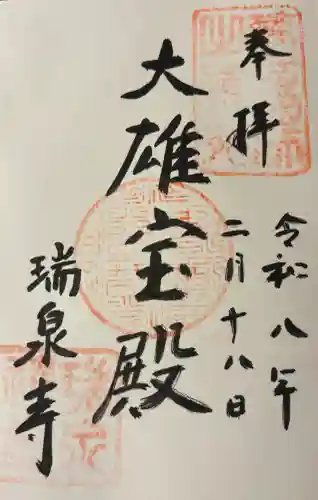 奉拝
令和八年
二月十八日
大雄宝殿
瑞泉寺